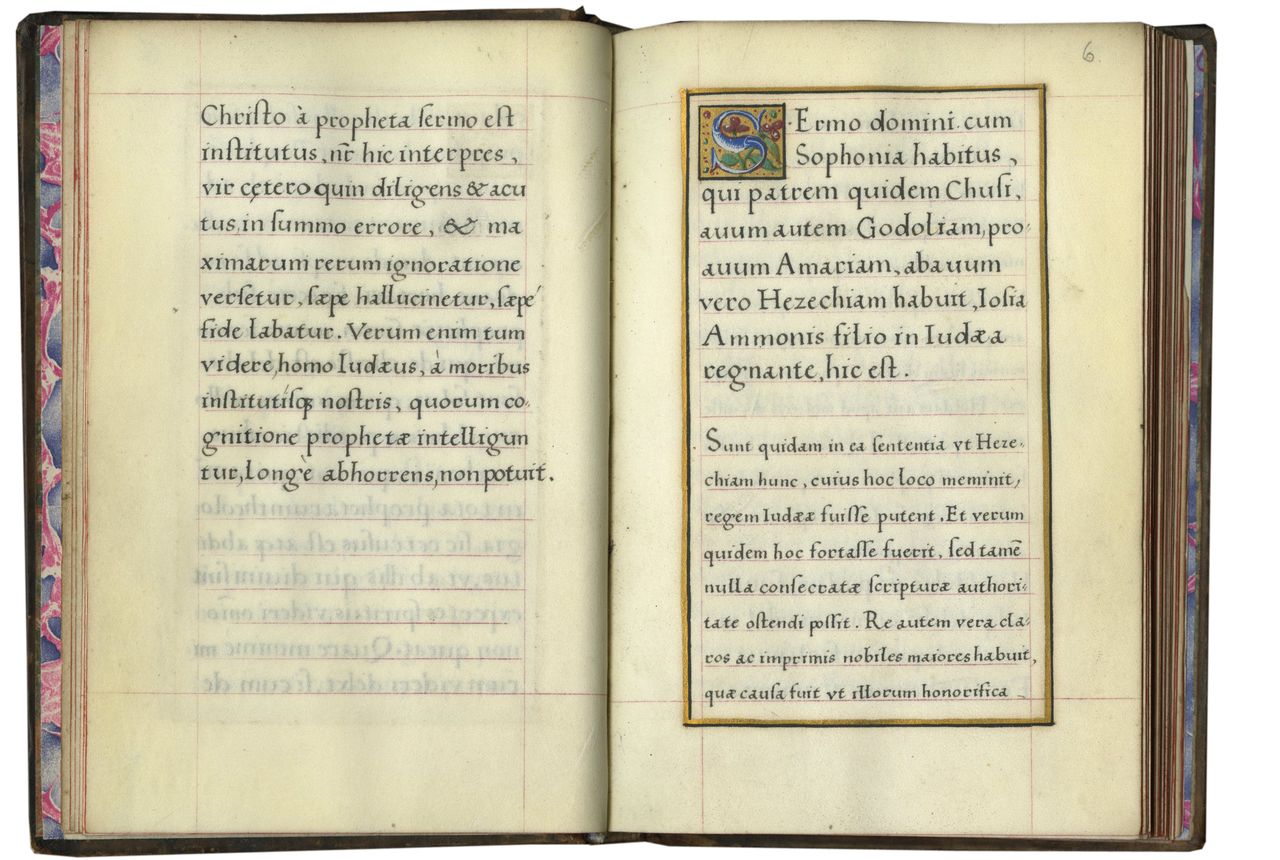 Chriſto à propheta ſermo eſt
inſtitutus, nr̄ hic interpres,
vir cętero quin diligens & acu
tus, in ſummo errore, & ma
ximarum rerum ignoratione
verſetur, ſæpe hallucinetur, ſæpe
fide labatur. Verum enim tum
videre, homo Iudæus, à moribus
inſtitutiſqꝫ noſtris, quorum co-
gnitione prophetæ intelligun
tur, longè abhorrens, non potuit.
6.
SErmo domini cum
Sophonia habitus,
qui patrem quidem Chuſi,
auum autem Godoliam, pro-
auum Amariam, abauum
vero Hezechiam habuit, Ioſia
Ammonis filio in Iudæa
regnante, hic eſt.
Sunt quidam in ea ſententia vt Heze-
chiam hunc, cuius hoc loco meminit,
regem Iudææ fuiſſe putent. Et verum
quidem hoc fortaſſe fuerit, ſed tamē
nulla conſecratæ ſcripturæ authori-
tate oſtendi poſſit. Re autem vera cla-
ros ac imprimis nobiles maiores habuit,
quæ cauſa fuit vt illorum honorifica